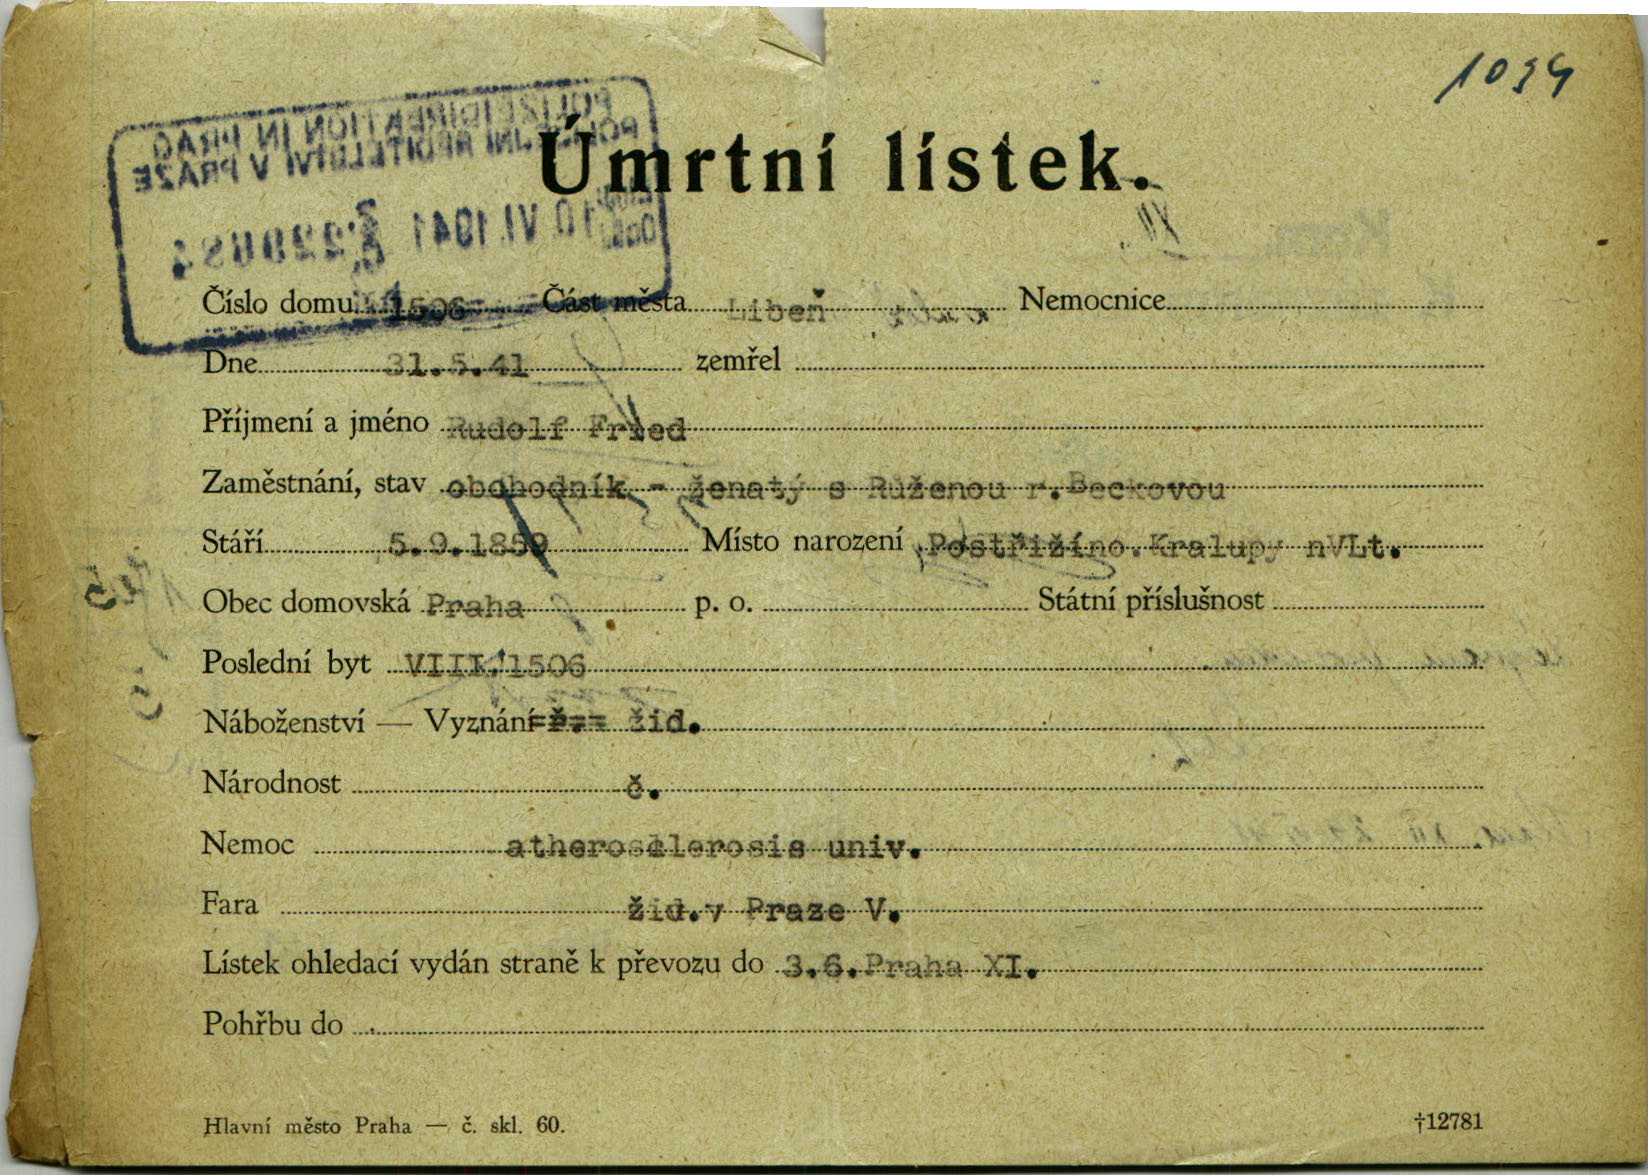 1034
POLIZEIDIREKTION IN PRAG
POLICEJNÍ ŘEDITELSTVÍ V PRAZE
10 VI. 1941
Úmrtní lístek.
Číslo domu 1506 Část města Libeň Nemocnice
Dne 31.5.41 zemřel
Příjmení a jméno Rudolf Fried
Zaměstnání, stav obchodník - ženatý s Růženou r.Beckovou
Stáří 5.9.1859 Místo narození Postřižíno.Kralupy nVLt.
Obec domovská Praha p. o. Státní příslušnost
Poslední byt VIII.1506
Náboženství — Vyznání žid.
Národnost č.
Nemoc atherosclerosis univ.
Fara žid.v Praze V.
Lístek ohledací vydán straně k převozu do 3.6.Praha XI.
Pohřbu do
Hlavní město Praha — č. skl. 60.
†12781